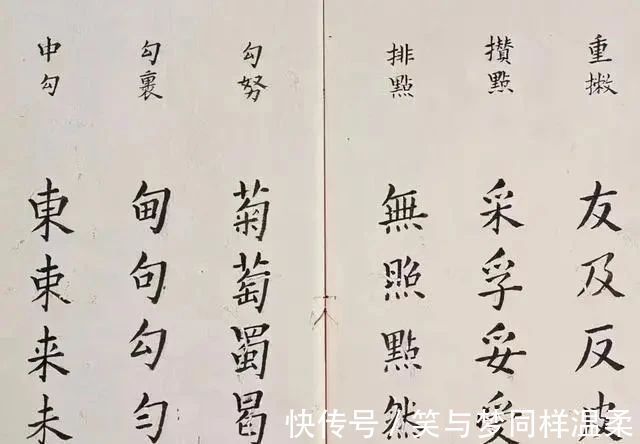 重撇
友及反皮
攢點
采孚妥受
排點
無照點然
勾努
菊萄蜀曷
勾裹
甸句勾勻
中勾
東来未
快传号 / 笑与梦同样温柔